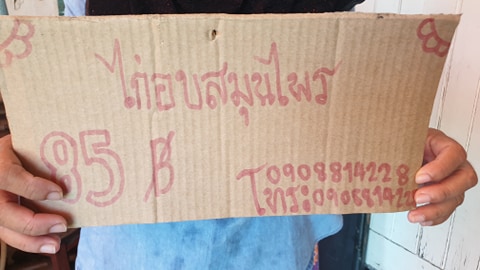 ไก่อบสมุนไพร
85 ฿
0908814228
โทร: